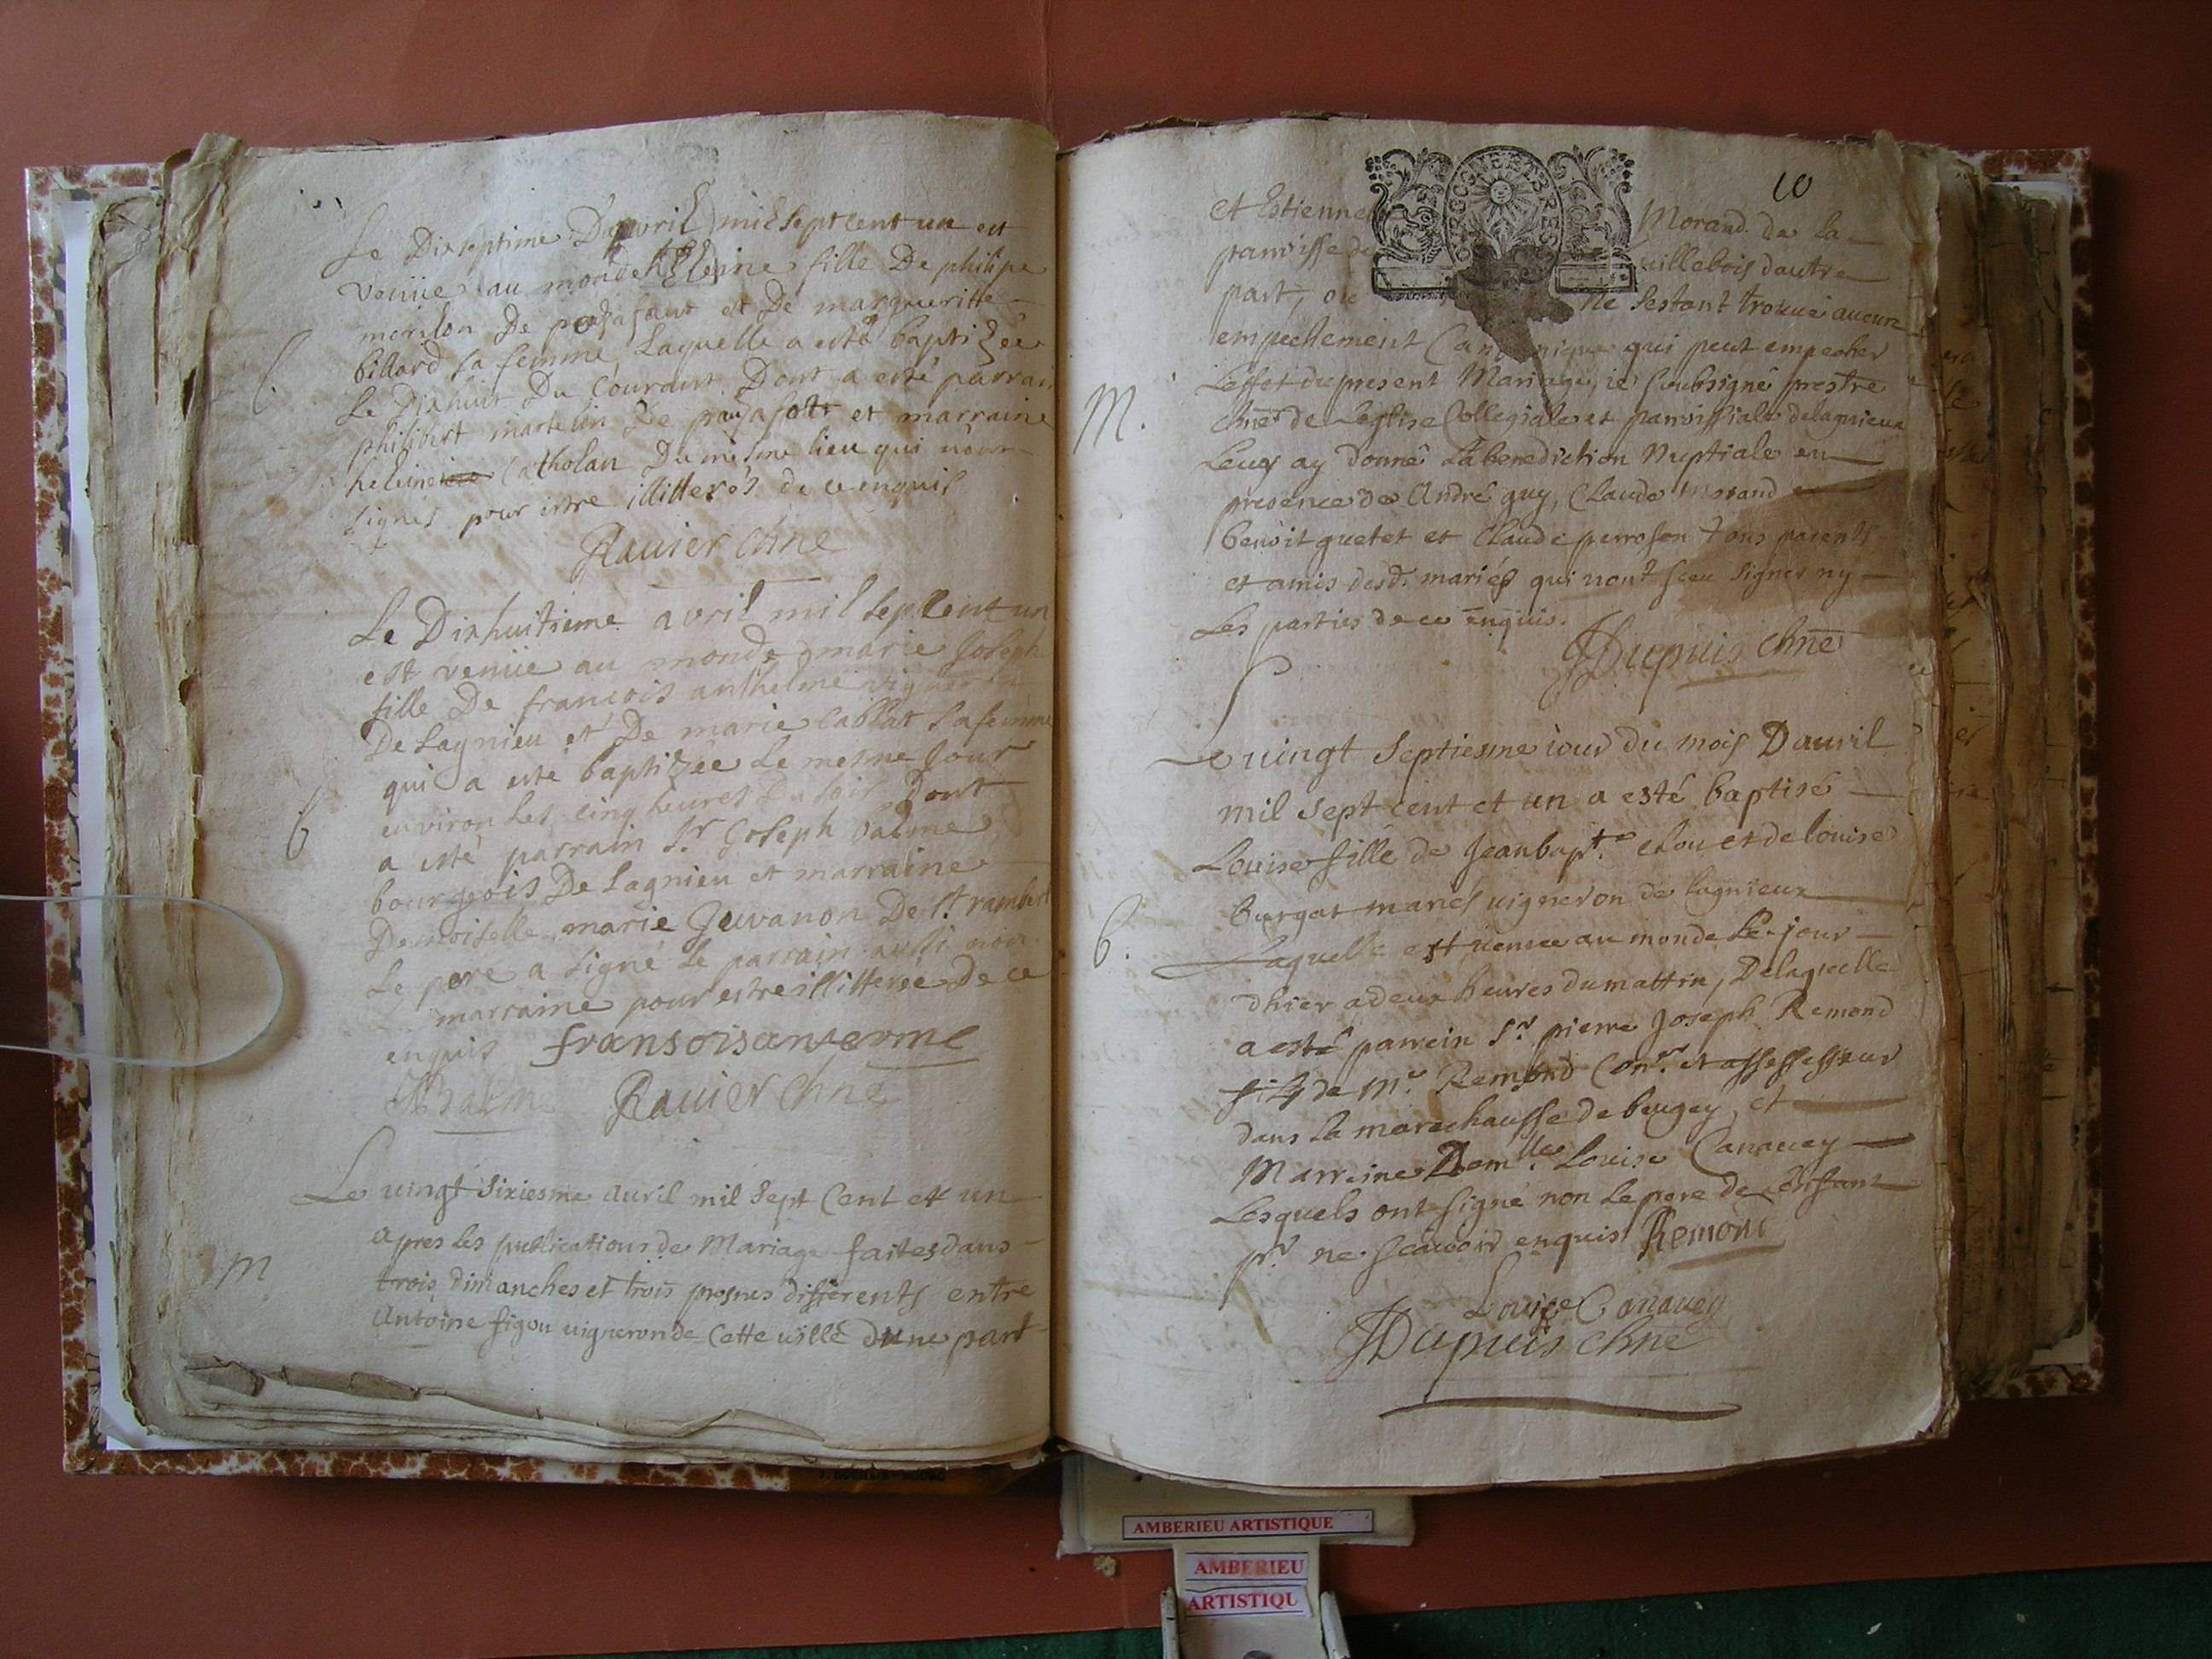 Le Dixseptime D'avril mil sept cent un est
venüe au monde heleine fille De philipe
merilon De et De margueritte
billard sa femme, Laquelle a esté baptizée
Le Dixhuit Du Courant Dont a esté parrain
philibert martelin De et marraine
heleine Catholan Du mesme lieu qui n'ont
signes pour estre illitterés de ce enquis
Rauier chne
Le Dixhuitieme avril mil sept cent un
est venüe au monde marie Joseph
fille De francois anthelme
De Lagnieu et De marie Cabbat sa femme
B
qui a esté baptizée Le mesme Jour
environ Les cinq heures Du soir Dont
a esté parrain Sr. Joseph balme
bourgeois De Lagnieu et marraine
Demoiselle marie Juvanon De St. rambert
Le pere a signé Le parrain aussi non
L marraine pour estre illitterée De ce
enquis fransois anterme
Balme Rauier chne
Le uingt sixiesme auril mil sept Cent et un
apres les publications de Mariage faites dans
M
trois dimanches et trois prosnes differents entre
Antoine figou uigneron de Cette uille dune part
10
et Estienne Morand de La
parroisse de uillebois dautre
part, ne sestant trouué aucun
empechement Canonique qui peut empecher
Leffet du present Mariage, ie soubsigné prestre
M.
chne de Leglise Collegiale et parroissiale de lagnieux
Leur ay donné La benediction Nuptiale en
presence de André guy, Claude morand
benoit guetet et Claude perroson tous parents
et amis desd. mariés qui nont sceu signer ny
Les parties de ce enquis.
JDupuis chne
Le uingt septiesme iour du mois D'auril
mil sept cent et un a esté baptisé
Louise fille de Jean bapte. et de louise
burgat mariés uigneron de lagnieux
B.
Laquelle est uenue au monde Le jour
dhier a deux heures du mattin, De laquelle
a esté parrein Sr. pierre Joseph Remond
filz de Mr. Remond Conr. et assessesseur
dans la marechaussé de beugey et
Marreine Demlle. Louise Canauey
Lesquels ont signé non le pere de l'enfant
pr. ne scauoir enquis Remond
Louise Canauey
JDupuis chne
AMBERIEU ARTISTIQUE
AMBERIEU
ARTISTIQU